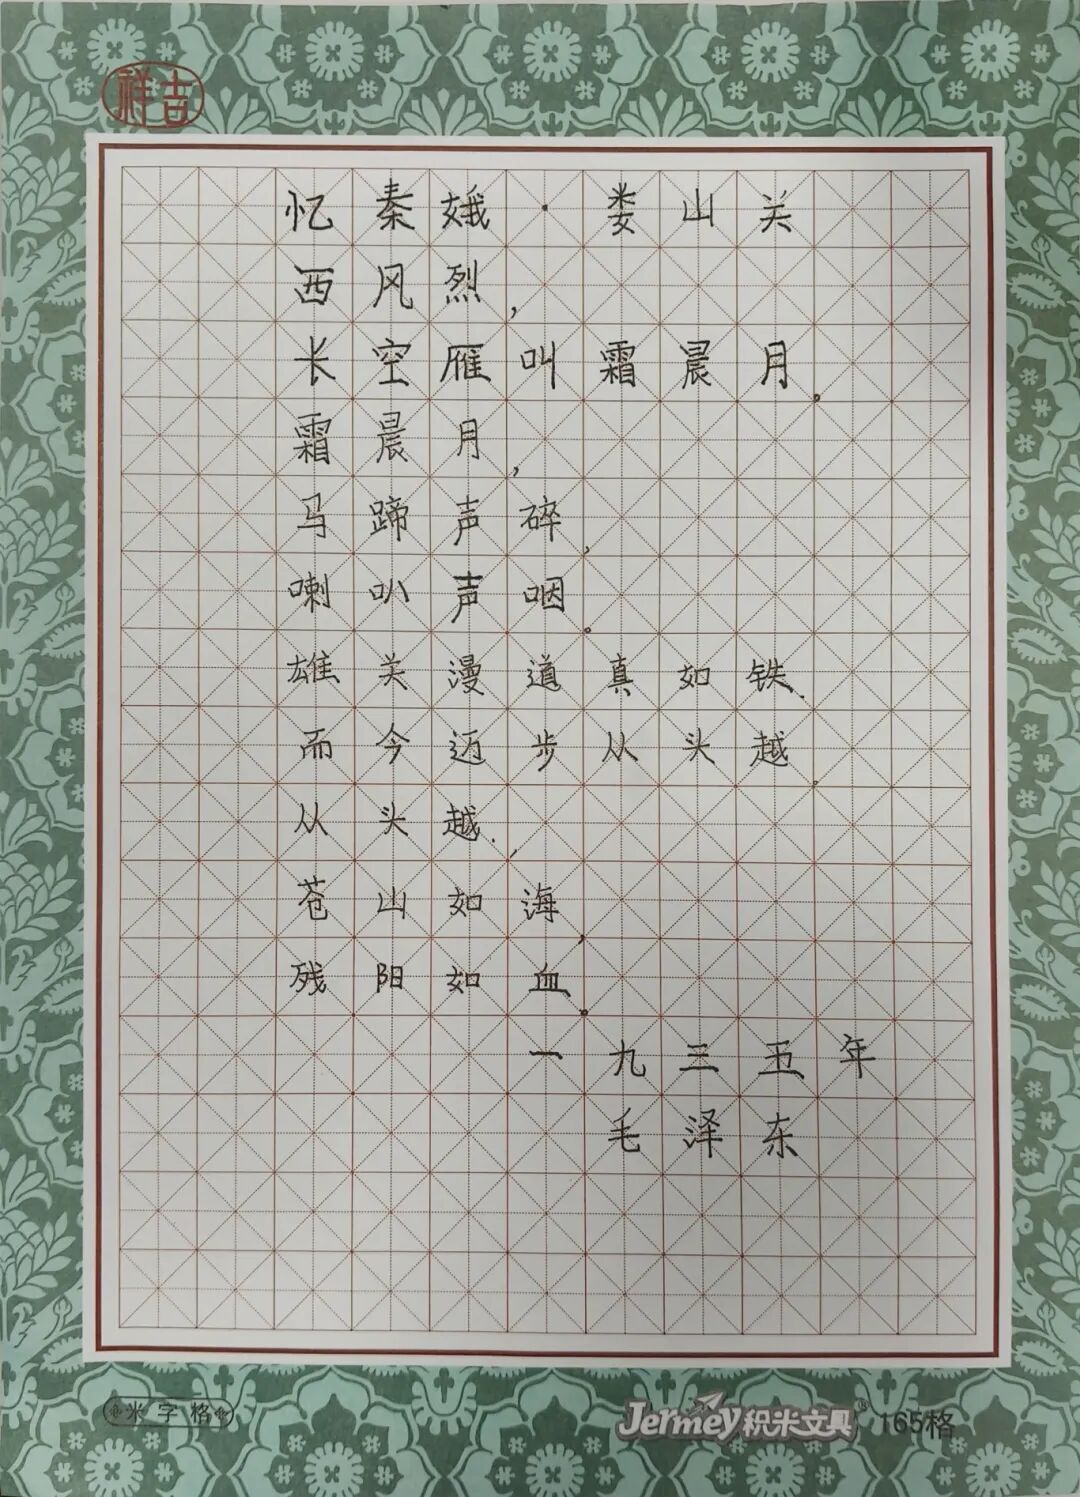 祥吉
忆秦娥·娄山关
西风烈,
长空雁叫霜晨月。
霜晨月,
马蹄声碎,
喇叭声咽。
雄关漫道真如铁.
而今迈步从头越.
从头越.,
苍山如海,
残阳如血。
一九三五年
毛泽东
米字格
Jermey积米文具® 165格